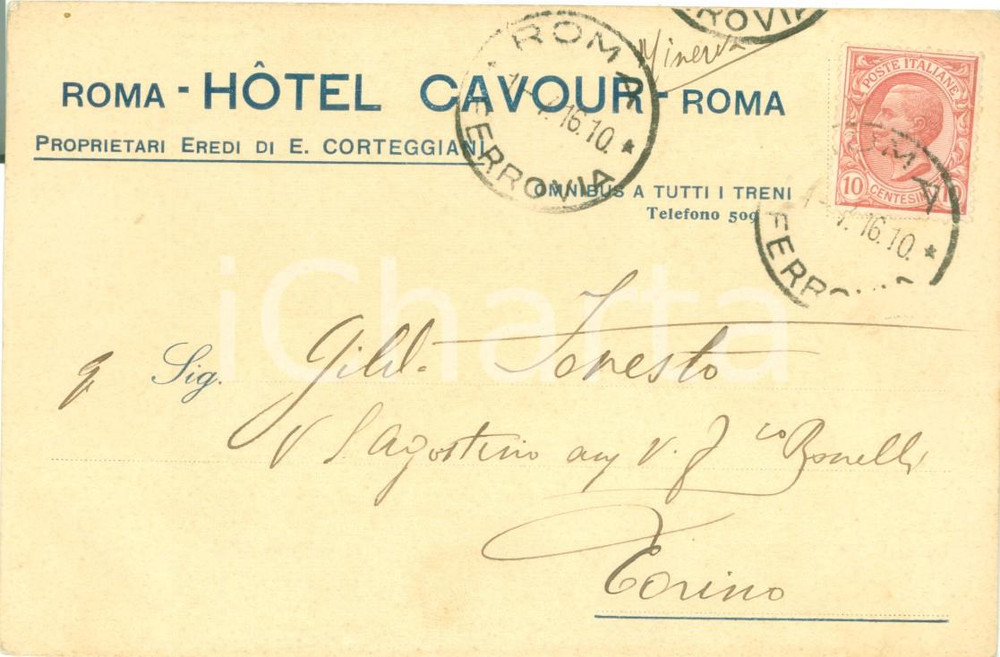 ROMA - HÔTEL CAVOUR - ROMA
PROPRIETARI EREDI DI E. CORTEGGIANI
OMNIBUS A TUTTI I TRENI
Telefono 509
ROMA
16.10.
FERROVIA
FERROVIA
Minerva
POSTE ITALIANE
10 CENTESIMI 10
ROMA
16.10.
FERROVIA
Sig. Gild. Foresto
V S Agostino ang V. F co Bonelli
Torino
iCharta